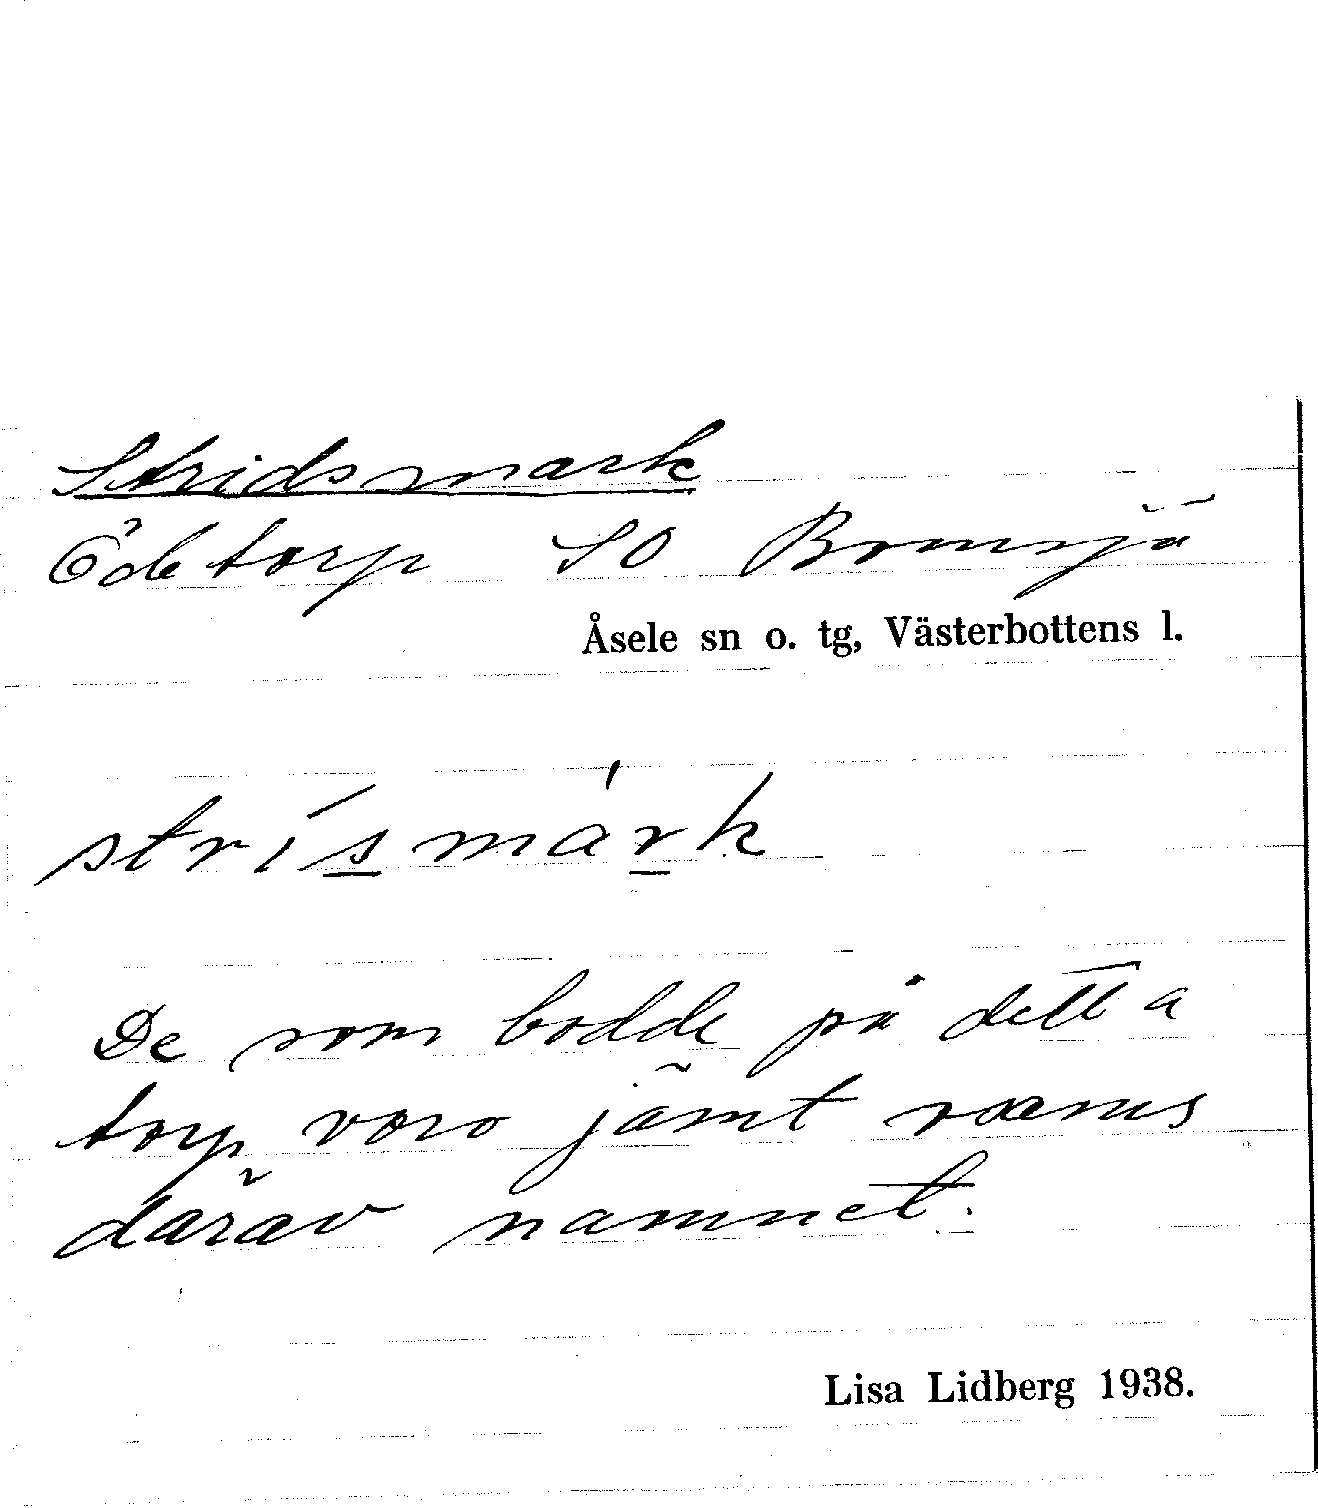 Stridsmark
Ödetorp SO Bomsjö
Åsele sn o. tg, Västerbottens l.
strísmárk
De som bodde på detta
torp voro jämt osams
därav namnet.
Lisa Lidberg 1938.